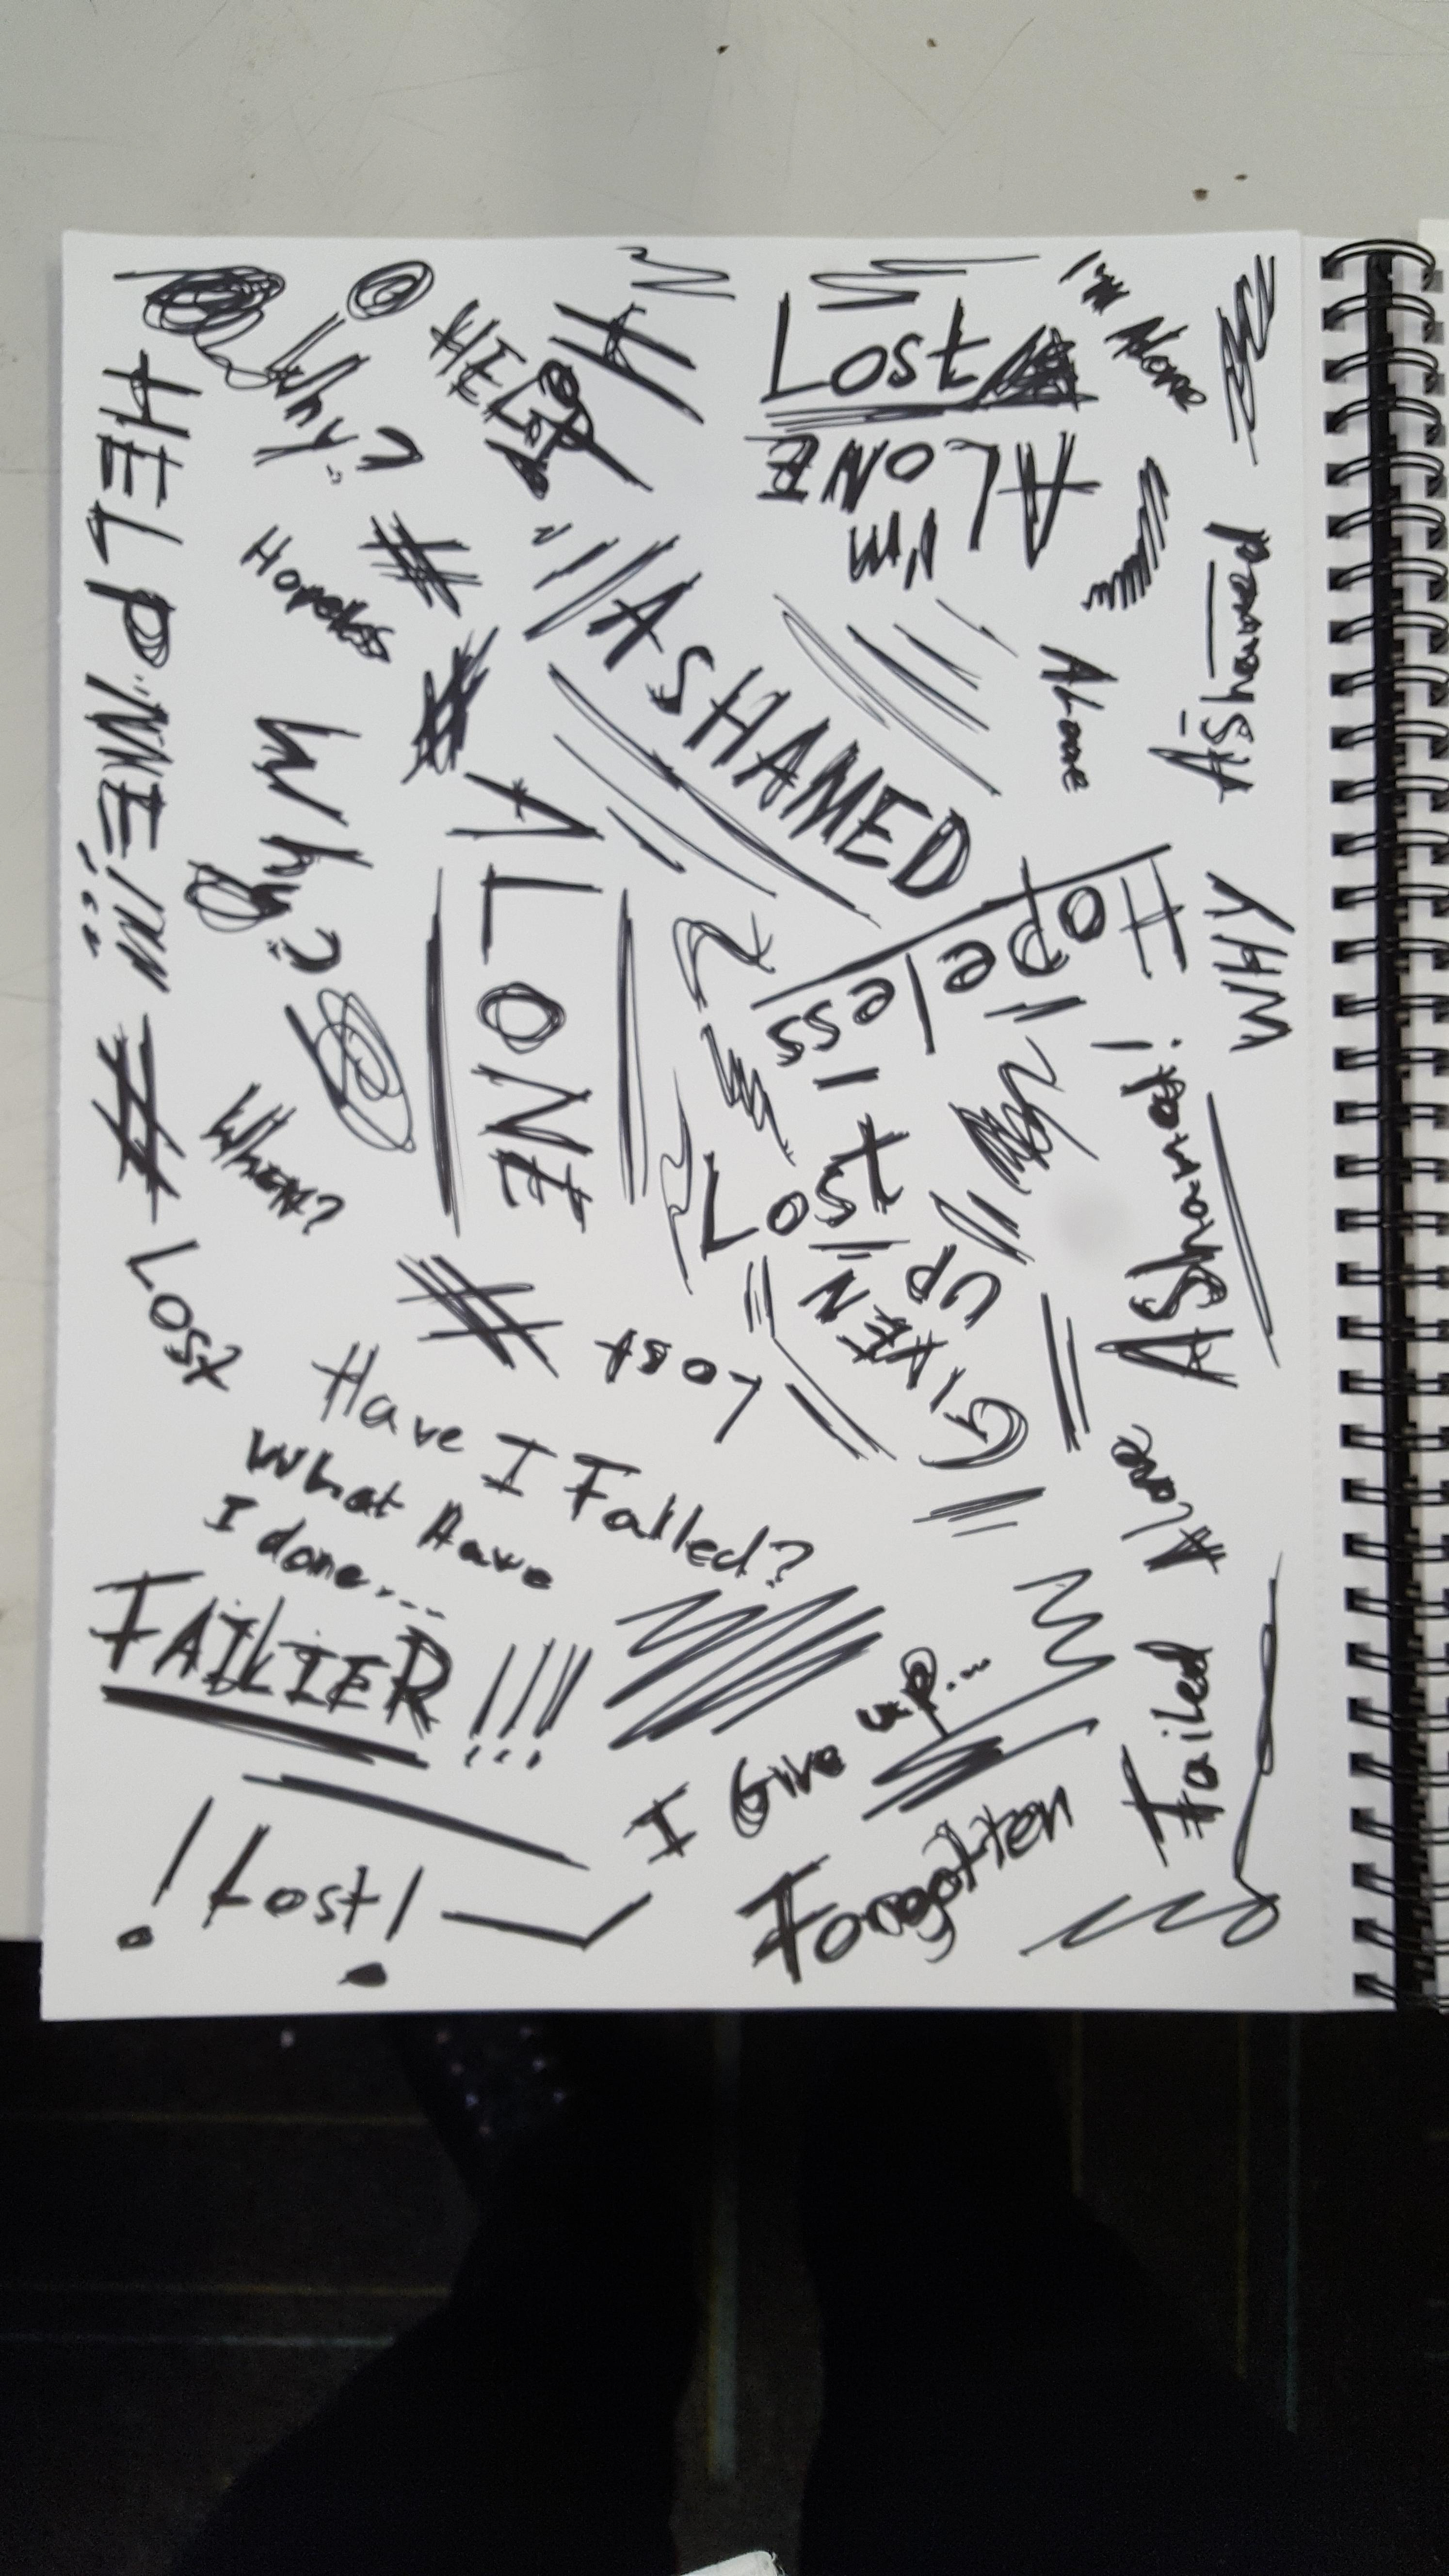 Why?
HELP
Lost
I'm Alone
HELP ME!!!
I'm
ALONE
Hopeless
ASHAMED
Alone
Ashamed
Why?
ALONE
Hopeless
WHY
When?
Lost
Ashamed!
GIVEN
UP
Lost
Lost
Have I Failed?
What Have
I done...
Alone
FAILIER!!!
I Give up...
Failed
Forgotten
! Lost!